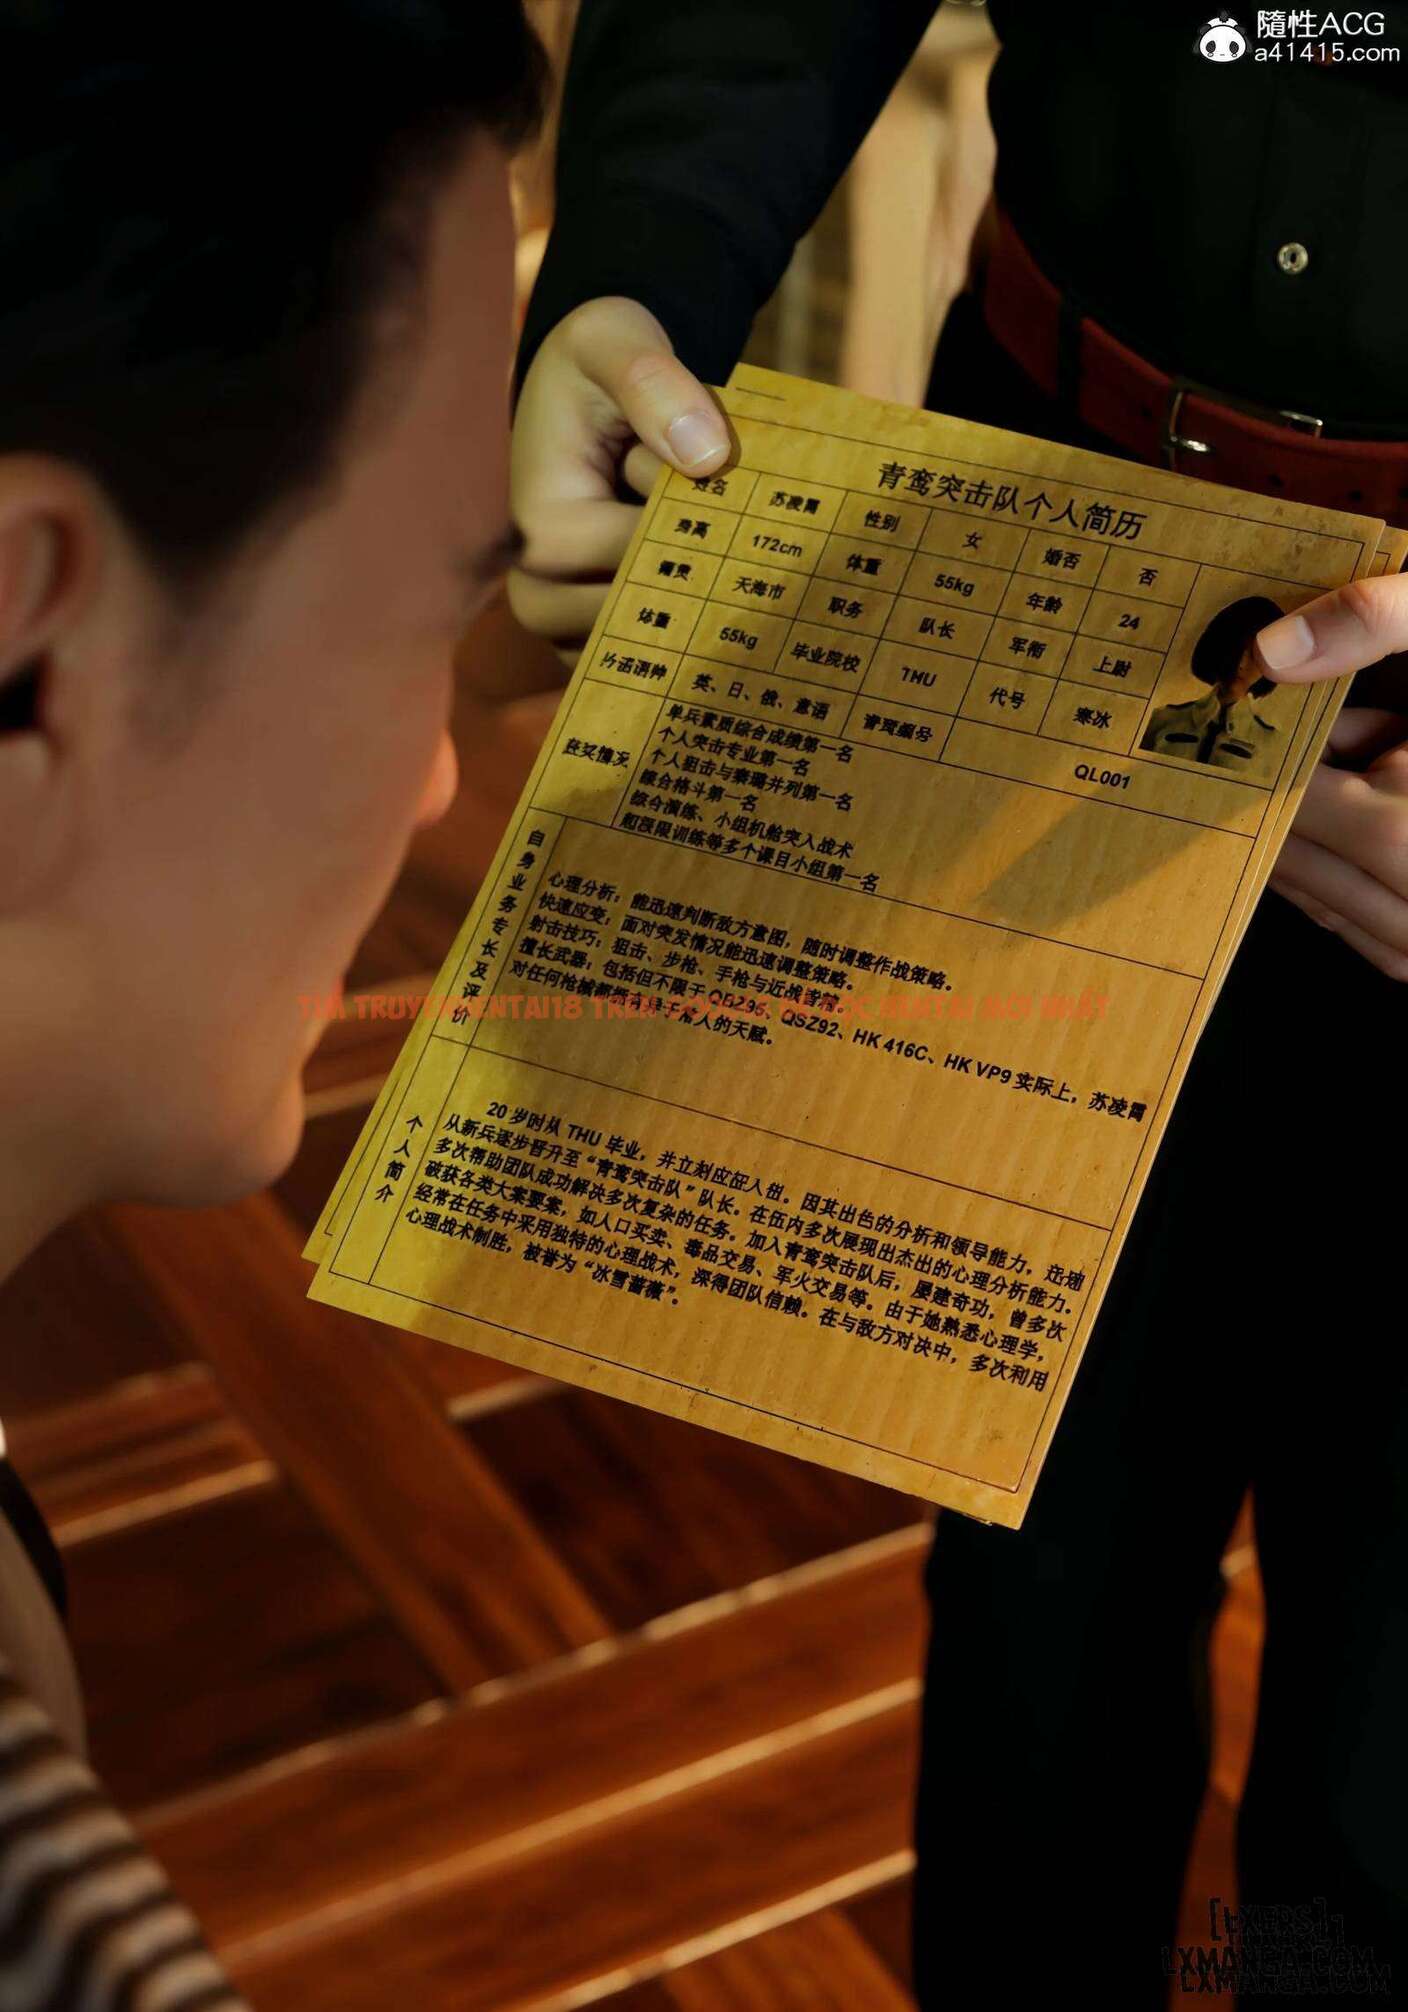 隨性ACG
a41415.com
青鸾突击队个人简历
姓名 苏凌霄 性别 女 婚否 否
身高 172cm 体重 55kg 年龄 24
籍贯 天海市 职务 队长 军衔 上尉
体重 55kg 毕业院校 THU 代号 寒冰
英、日、俄、意语 青鸾编号 QL001
单兵素质综合成绩第一名
个人突击专业第一名
个人狙击与秦璐并列第一名
综合格斗第一名
综合演练、小组机舱突入战术
超极限训练等多个课目小组第一名
自身业务专长及评价
心理分析：能迅速判断敌方意图，随时调整作战策略。
快速应变：面对突发情况能迅速调整策略。
射击技巧：狙击、步枪、手枪与近战皆精
擅长武器：包括但不限于QBZ95、QSZ92、HK 416C、HK VP9 实际上，苏凌霄
对任何枪械都 人的天赋。
个人简介
20 岁时从 THU 毕业，并立刻应征入伍。因其出色的分析和领导能力，迅速
从新兵逐步晋升至“青鸾突击队”队长。在伍内多次展现出杰出的心理分析能力。
多次帮助团队成功解决多次复杂的任务。加入青鸾突击队后，屡建奇功，曾多次
破获各类大案要案，如人口买卖、毒品交易、军火交易等。由于她熟悉心理学，
经常在任务中采用独特的心理战术，深得团队信赖。在与敌方对决中，多次利用
心理战术制胜，被誉为“冰雪蔷薇”。
[LXERS]
LXMANGA.COM
LXMANGA.COM